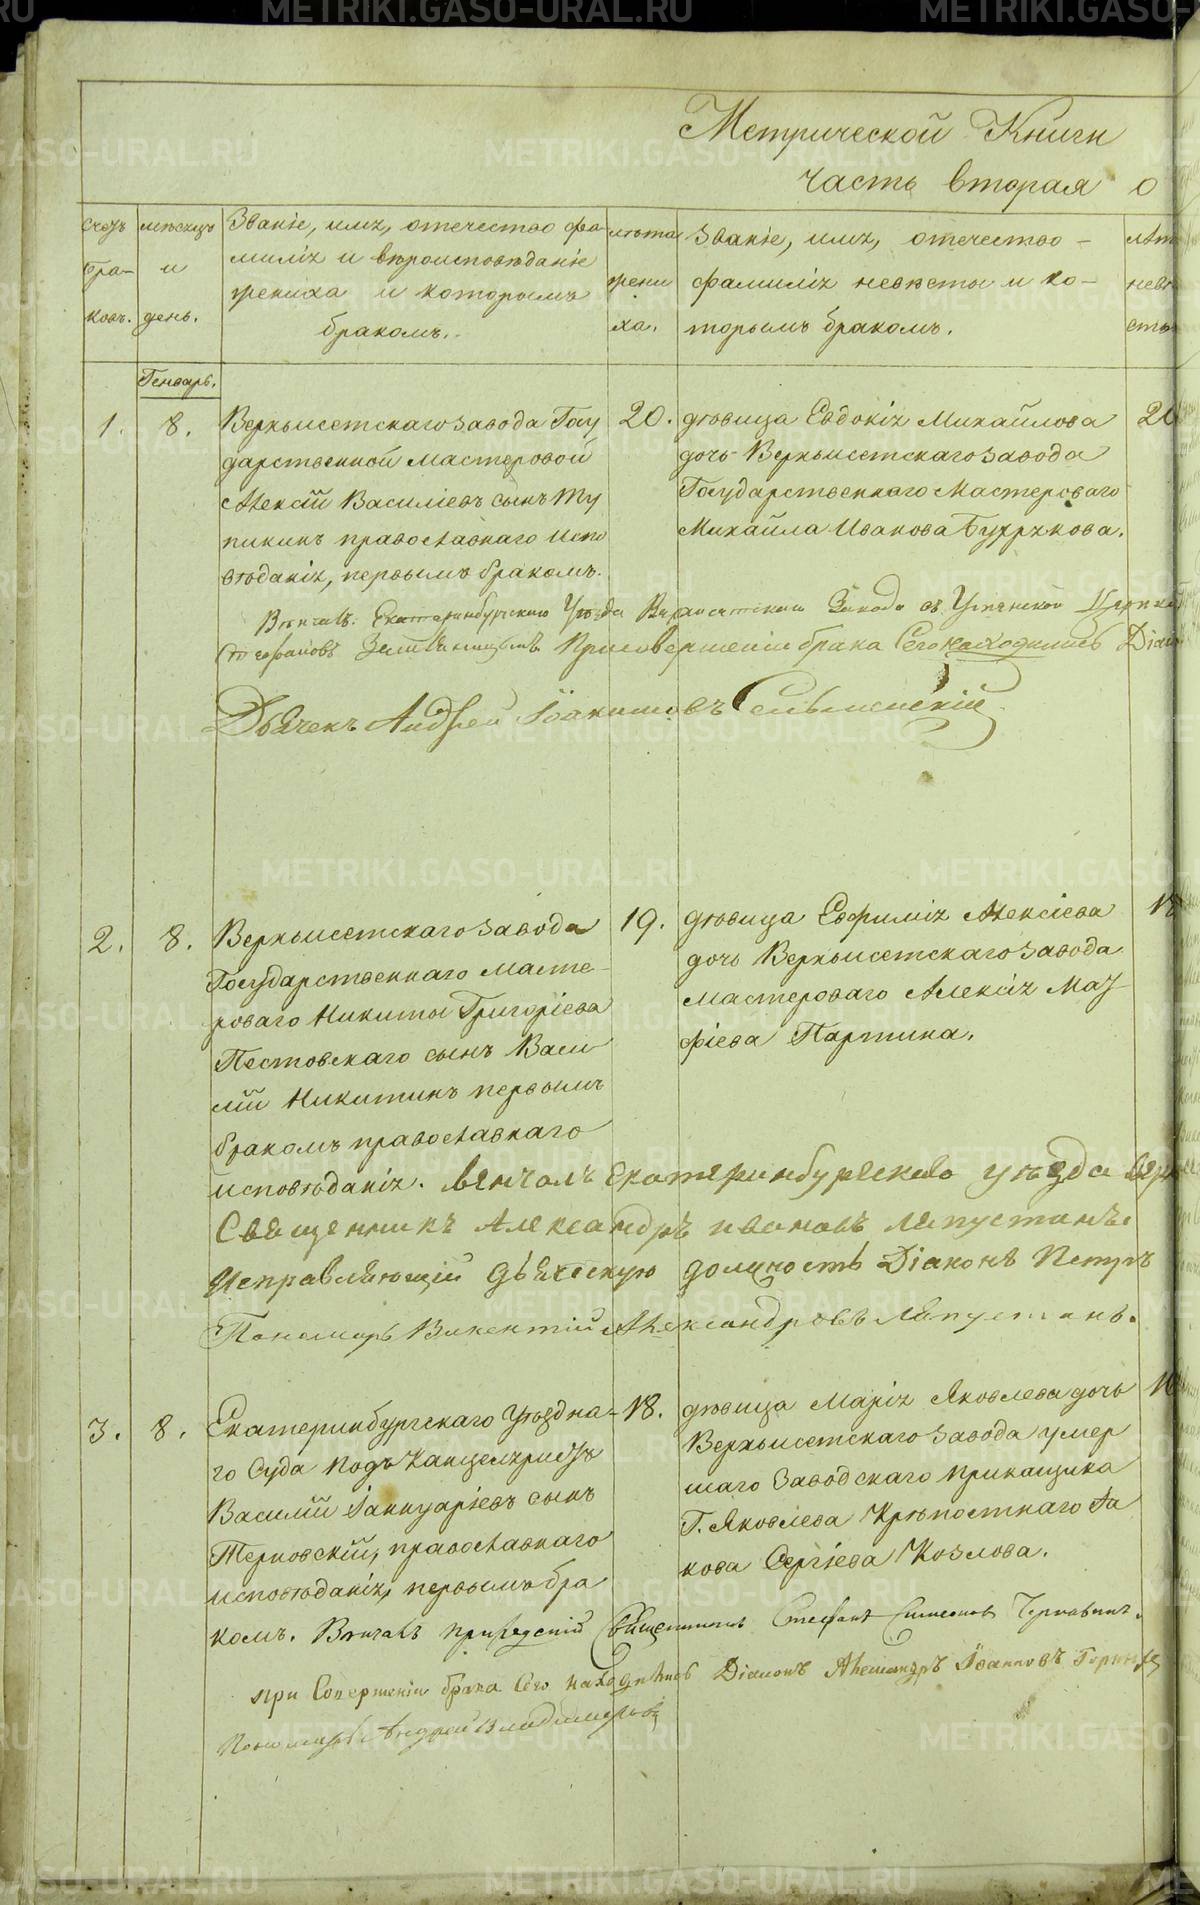 METRIKI.GASO-URAL.RU
Метрической Книги
часть вторая о
Счетъ бра-ковъ.
месяцъ и день.
Званіе, имя, отечество фа-
миліия и вѣроисповѣданіе
жениха и которымъ
бракомъ.
лѣта жени ха.
Званіе, имя, отечество –
фамилія невѣсты и ко-
торымъ бракомъ.
Генварь.
1. 8.
Верхъисетскаго завода Госу
дарственной Мастеровой
Алексій Василіевъ сынъ Ту
пикинъ православнаго Испо
вѣданія, первымъ бракомъ.
20.
дѣвица Евдокія Михайлова
дочь Верхъисетскаго завода
Государственнаго Мастероваго
Михайла Иванова
20
Вѣнчалъ: Екатеринбургскаго Уѣзда Верхисетскаго Завода
При совершеніи брака Сего находились Діако
Дьячекъ Андрей Іоакимовъ Сельменскій
2. 8.
Верхъисетскаго завода
Государственнаго масте-
роваго Никиты Григоріева
Пестовскаго сынъ Васи
лій Никитинъ первымъ
бракомъ православнаго
исповѣданія.
19.
дѣвица Евфимія Алексіева
дочь Верхъисетскаго завода
мастероваго Алексія Мау
фіева Партина.
Вѣнчалъ Екатеринбургскаго уѣзда Верх
Священникъ Александръ ивановъ Ляпустинъ.
Исправляющій дьяческую должность Діаконъ Петръ
Пономарь Викентій Александровъ Ляпустинъ.
3. 8.
Екатеринбургскаго Уѣздна-
го Суда Подъ Канцеляристъ
Василій Іаннуаріевъ сынъ
Терновскій, православнаго
исповѣданія, первымъ бра
комъ.
18.
дѣвица Марія Яковлева дочь
Верхъисетскаго завода умер
шаго Заводскаго прикащика
Г. Яковлева Крѣпостнаго Іа
кова Сергіева Козлова.
Вѣнчалъ Священникъ Стефанъ Симеоновъ
при Совершеніи брака Сего находились Діаконъ Александръ Іоанновъ
Пономарь Андрей Владимеровъ